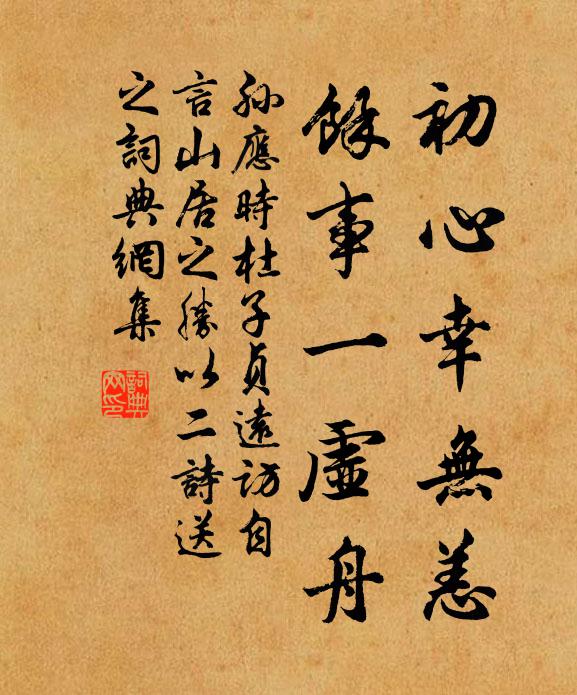 初心幸無恙
餘事一虛舟
孫應時杜子貞遠訪自
言山居之勝以二詩送
之詞典網集
詞典網印